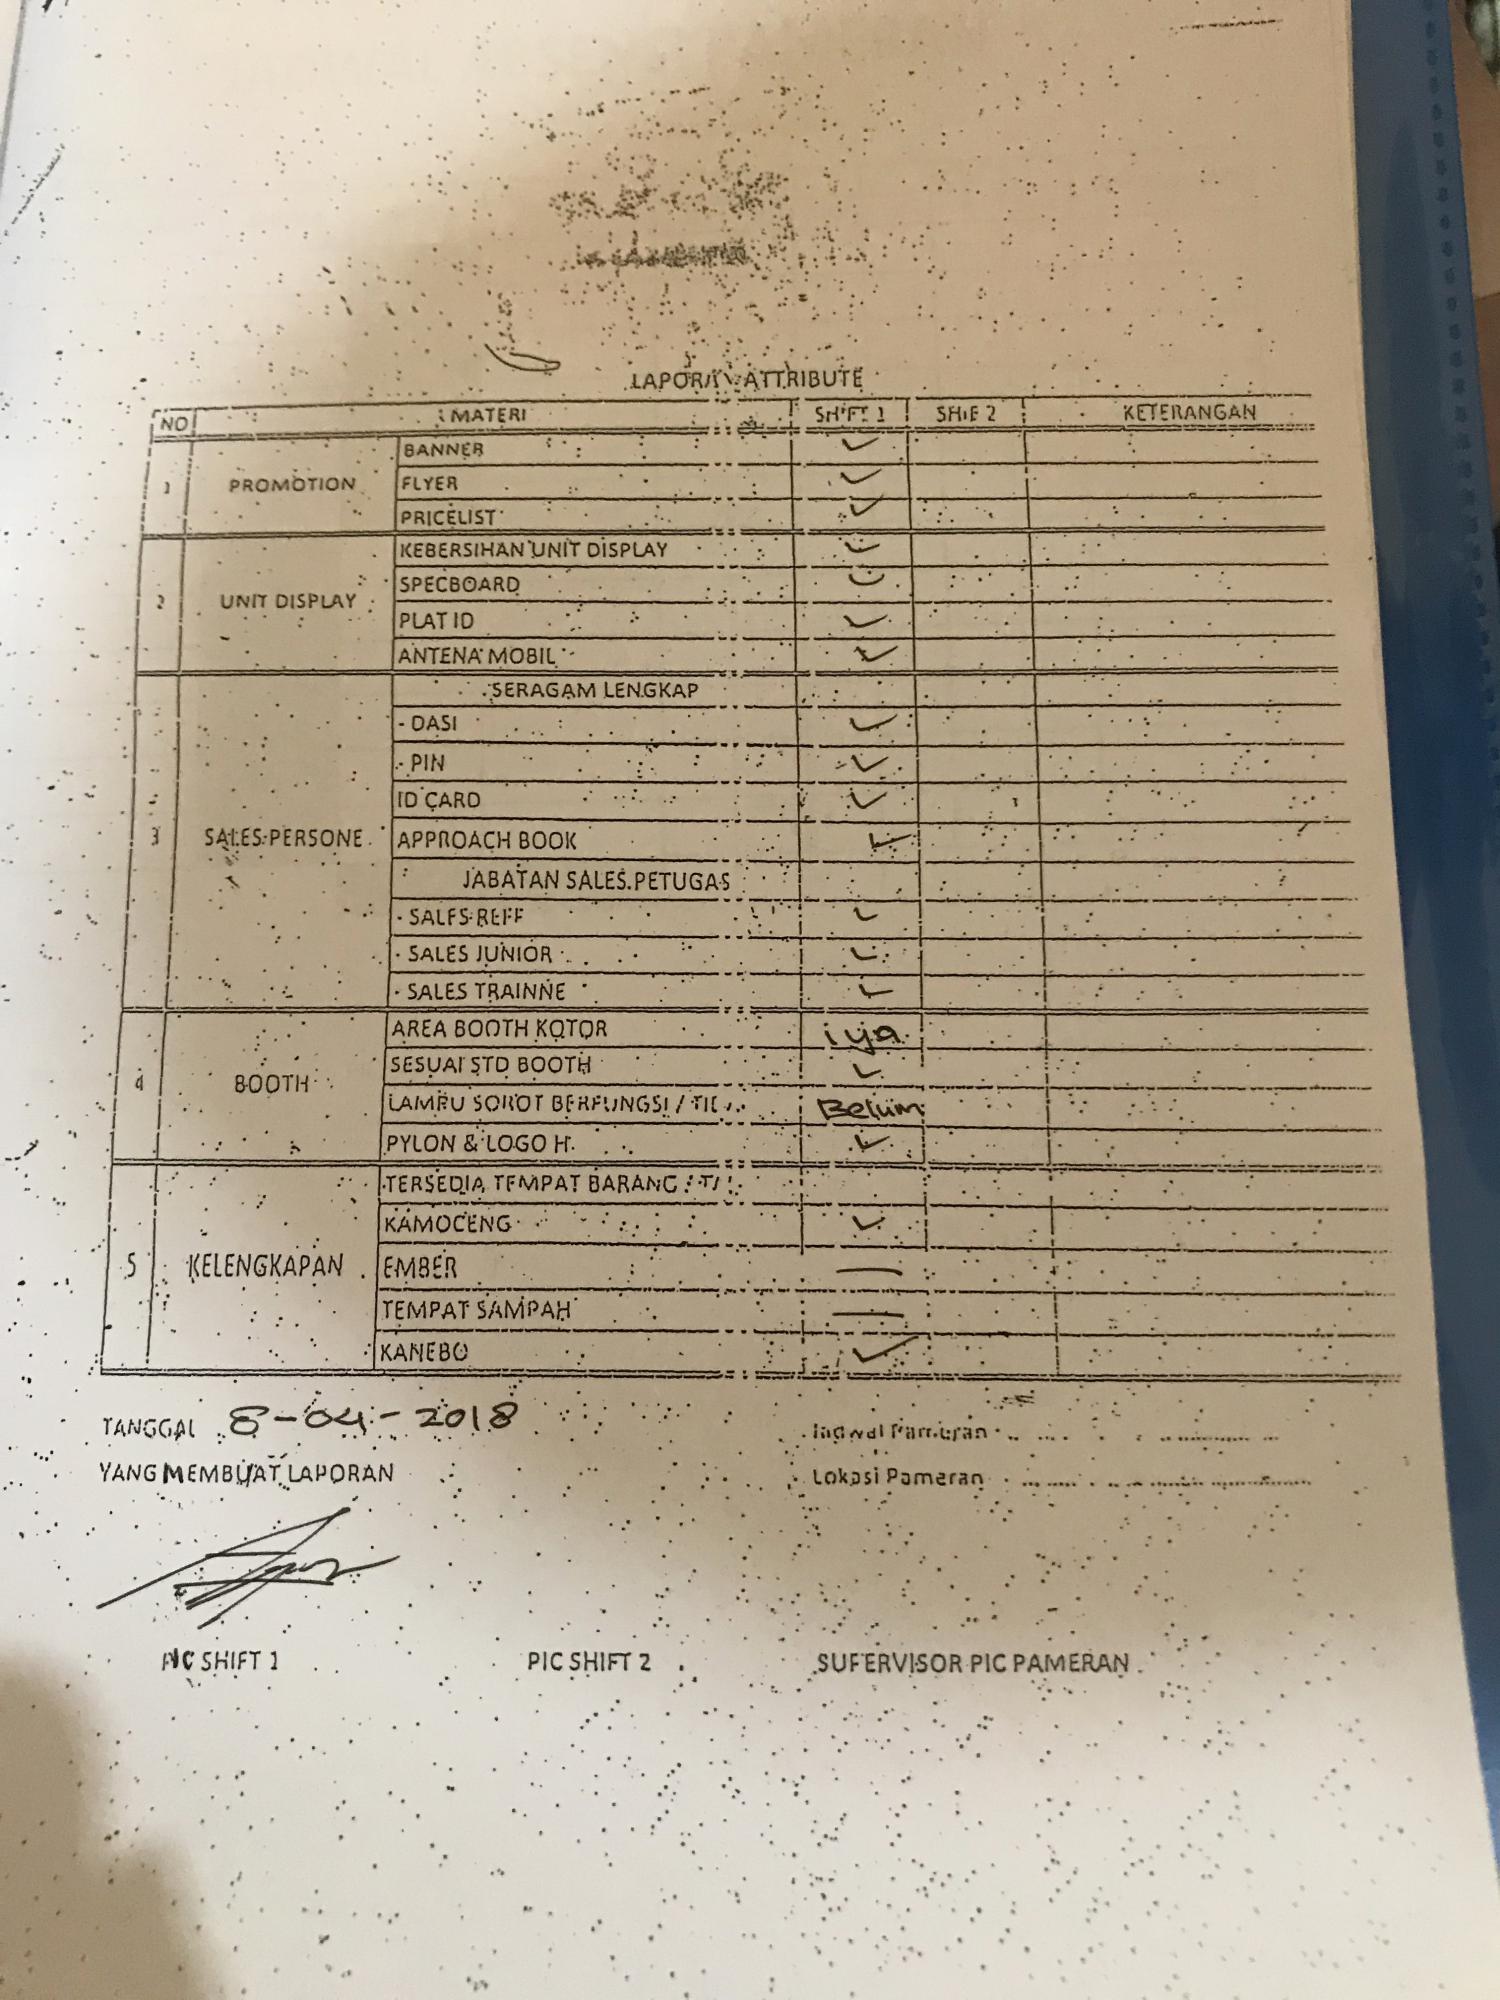 LAPORAN ATTRIBUTE
NO MATERI SHIFT 1 SHIF 2 KETERANGAN
1 PROMOTION BANNER ✓
FLYER ✓
PRICELIST ✓
2 UNIT DISPLAY KEBERSIHAN UNIT DISPLAY ✓
SPECBOARD ✓
PLAT ID ✓
ANTENA MOBIL ✓
3 SALES PERSONE SERAGAM LENGKAP
- DASI ✓
- PIN ✓
ID CARD ✓
APPROACH BOOK ✓
JABATAN SALES PETUGAS
- SALES REFF ✓
- SALES JUNIOR ✓
- SALES TRAINNE ✓
4 BOOTH AREA BOOTH KOTOR iya
SESUAI STD BOOTH ✓
LAMPU SOROT BERFUNGSI / Belum
PYLON & LOGO H ✓
5 KELENGKAPAN TERSEDIA TEMPAT BARANG /
KAMOCENG ✓
EMBER —
TEMPAT SAMPAH —
KANEBO ✓
TANGGAL 8-04-2018
YANG MEMBUAT LAPORAN
Jadwal Pameran
Lokasi Pameran
PIC SHIFT 1 PIC SHIFT 2 SUPERVISOR PIC PAMERAN